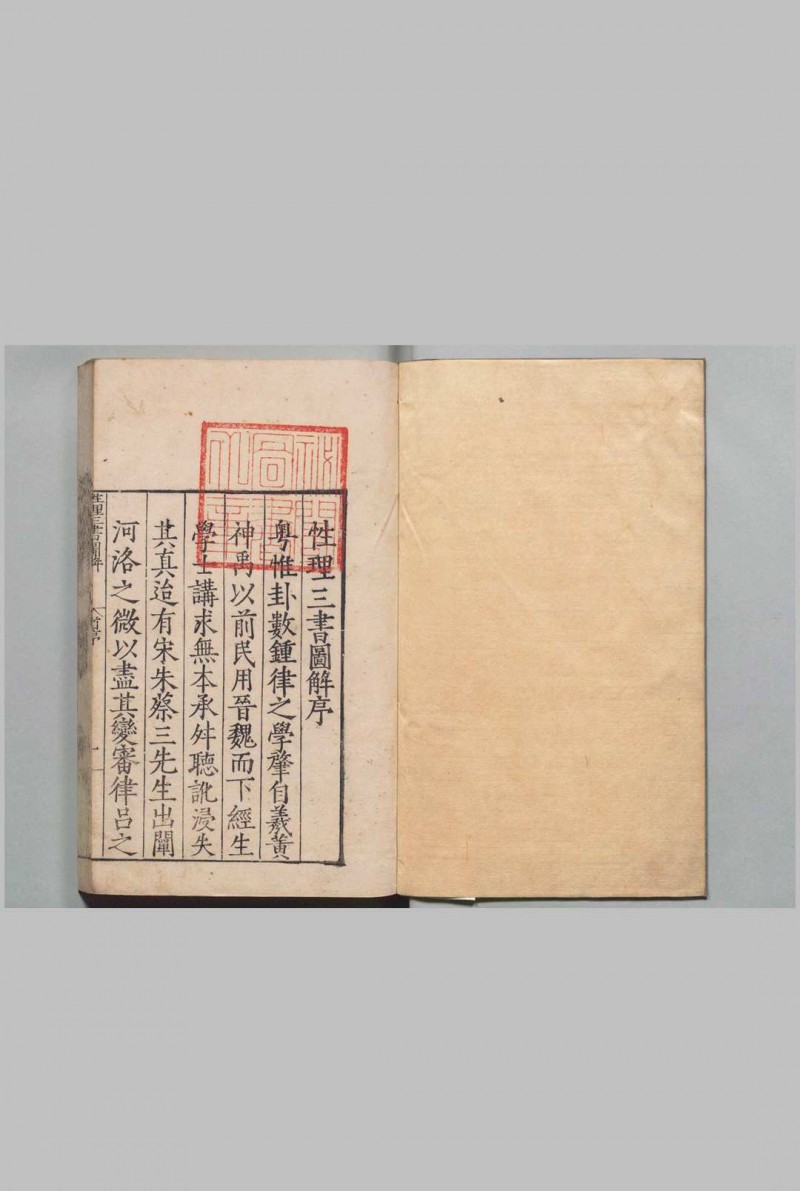 性理三書圖解序
粵惟卦數鍾律之學肇自羲黃
神禹以前民用晉魏而下經生
學士講求無本承舛聽訛浸失
其真迨有宋朱蔡三先生出闡
河洛之微以盡其變審律呂之
性理三書圖解
序
一